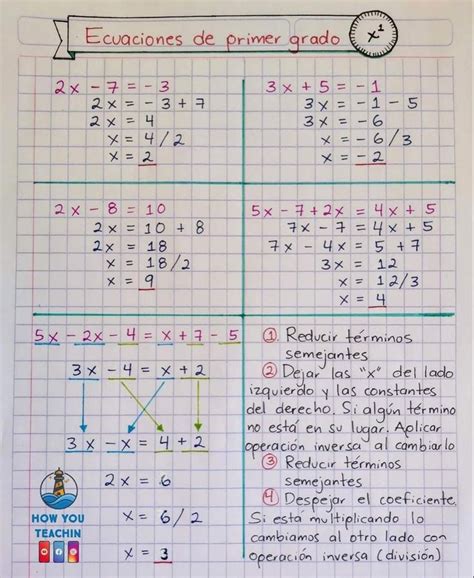 Ecuaciones de primer grado
x¹
2x - 7 = - 3
2x = - 3 + 7
2x = 4
x = 4 / 2
x = 2
3x + 5 = - 1
3x = - 1 - 5
3x = - 6
x = - 6 / 3
x = - 2
2x - 8 = 10
2x = 10 + 8
2x = 18
x = 18 / 2
x = 9
5x - 7 + 2x = 4x + 5
7x - 7 = 4x + 5
7x - 4x = 5 + 7
3x = 12
x = 12/3
x = 4
5x - 2x - 4 = x + 7 - 5
3x - 4 = x + 2
3x - x = 4 + 2
2x = 6
x = 6 / 2
x = 3
HOW YOU
TEACHIN
① Reducir términos
semejantes
② Dejar las "x" del lado
izquierdo y las constantes
del derecho. Si algún término
no está en su lugar. Aplicar
operación inversa al cambiarlo
③ Reducir términos
semejantes
④ Despejar el coeficiente.
Si está multiplicando lo
cambiamos al otro lado con
operación inversa (división)